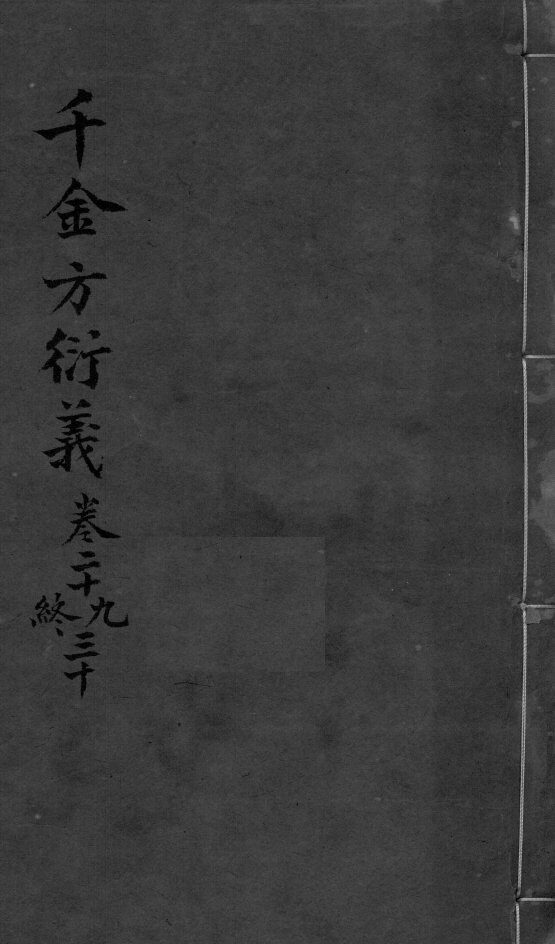 千金方衍義卷二十九三十
終